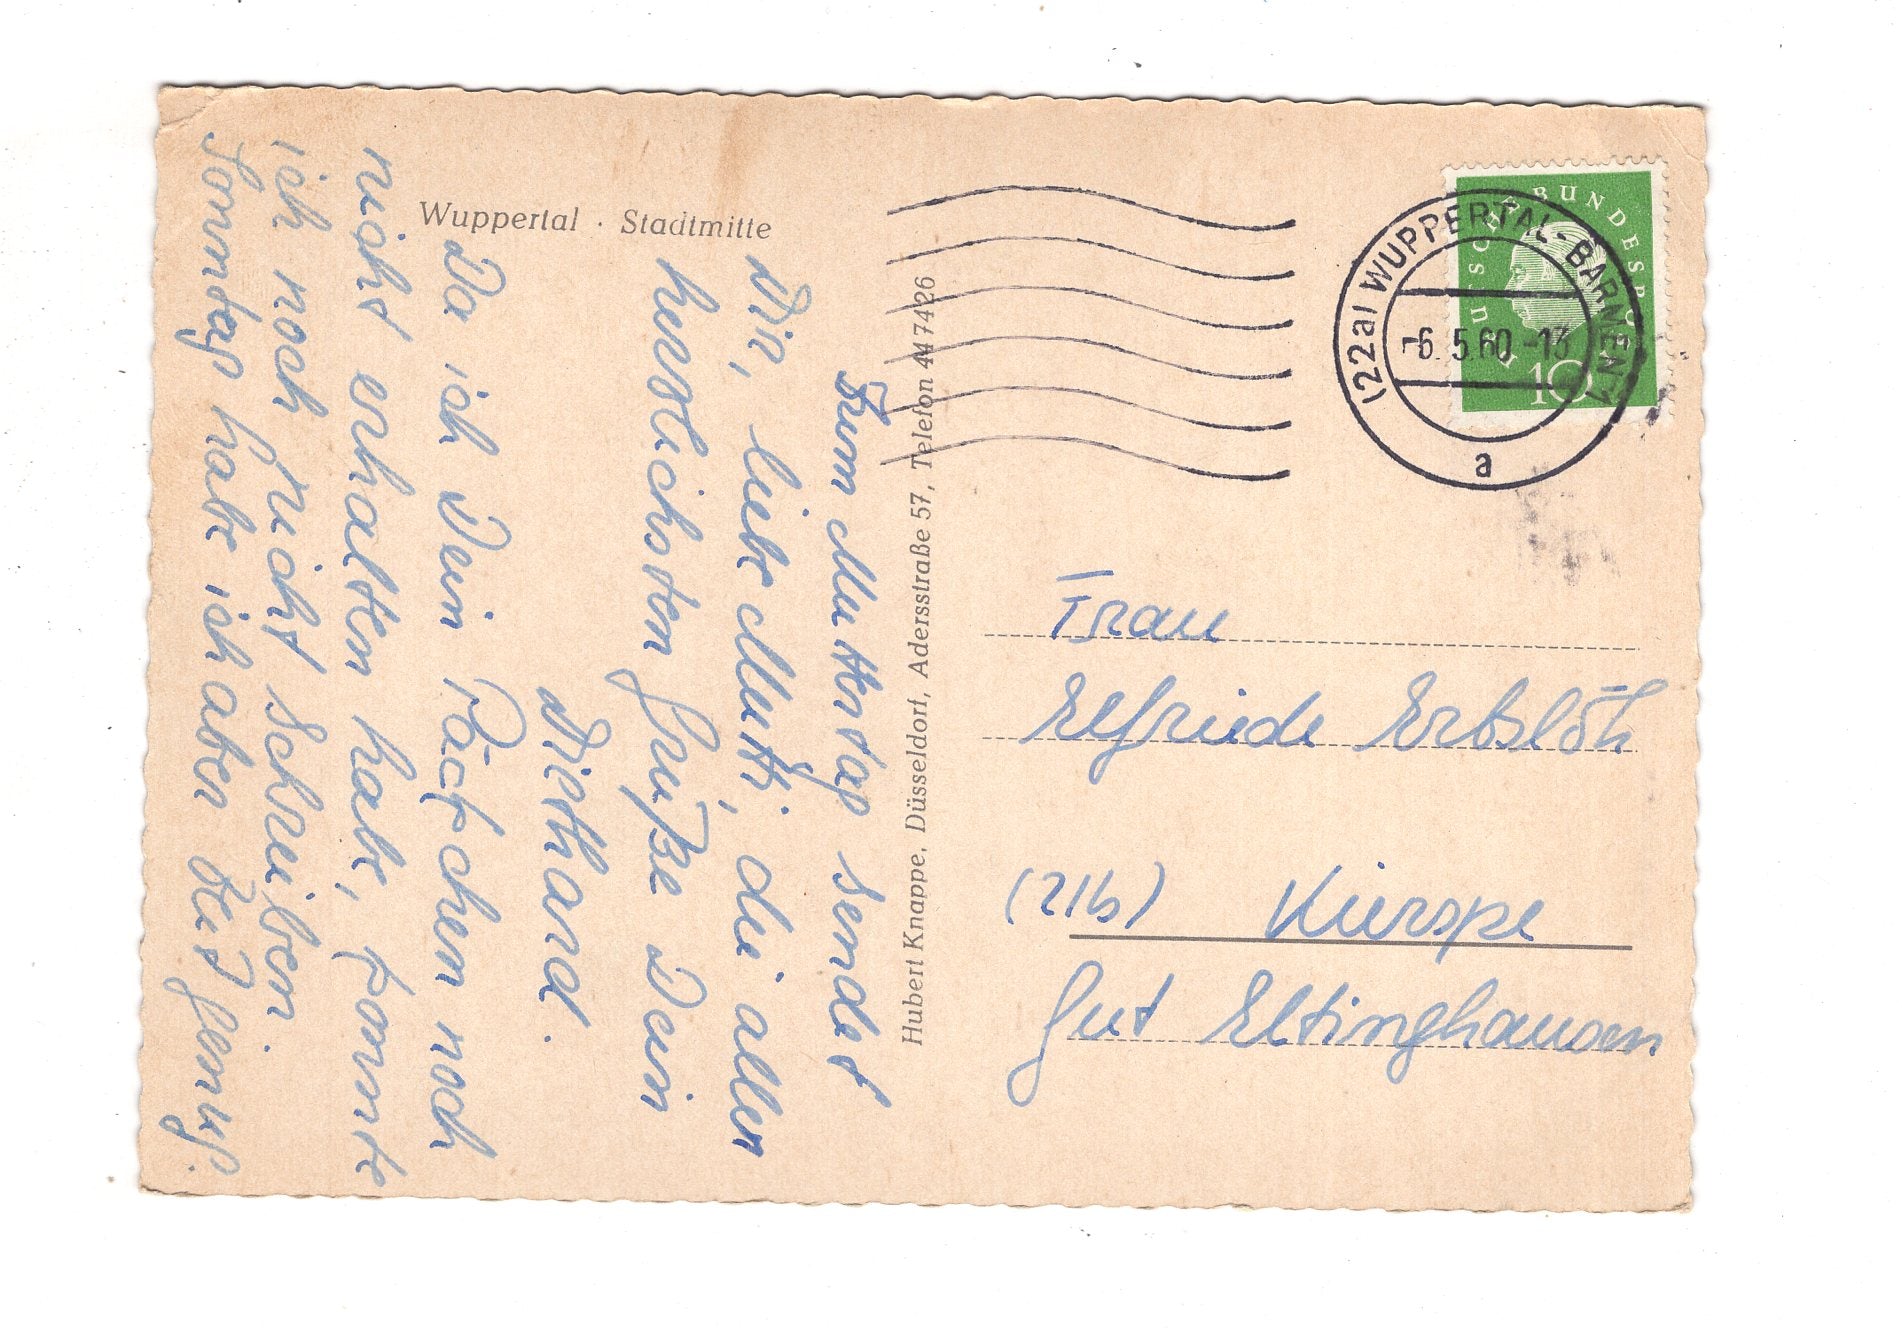 Wuppertal · Stadtmitte
Zum Muttertag sendet
Dir, liebe Mutti, die aller
herzlichsten Grüße Dein
Diethard.
Da ich Dein Päckchen noch
nicht erhalten habe, konnte
ich noch nicht schreiben
Sonntag habe ich aber
Hubert Knappe, Düsseldorf, Adersstraße 57, Telefon 44 74 26
DEUTSCHE BUNDESPOST
10
(22a) WUPPERTAL-BARMEN 1
-6.5.60-13
a
Frau
Elfriede Erbslöh
(21b) Kierspe
Gut Eltinghausen